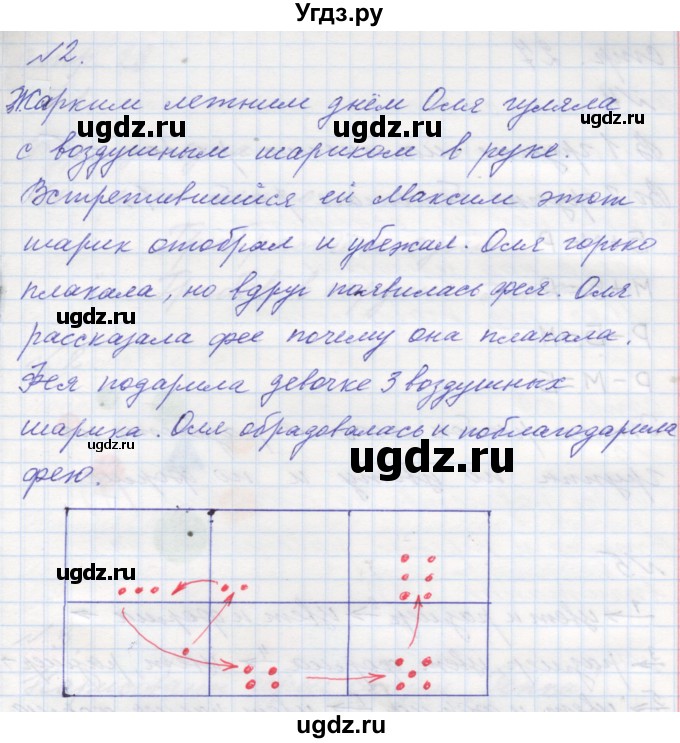 Угдз.ру
№2.
Жарким летним днём Оля гуляла
ugdz.ru ugdz.ru
с воздушным шариком в руке.
Встретившийся ей Максим этот
шарик отобрал и убежал. Оля горько
плакала, но вдруг появилась фея. Оля
ugdz.ru
рассказала фее почему она плакала.
Фея подарила девочке 3 воздушных
шарика. Оля обрадовалась и поблагодарила
ugdz.ru
ugdz.ru
фею.
ugdz.ru
ugdz.ru